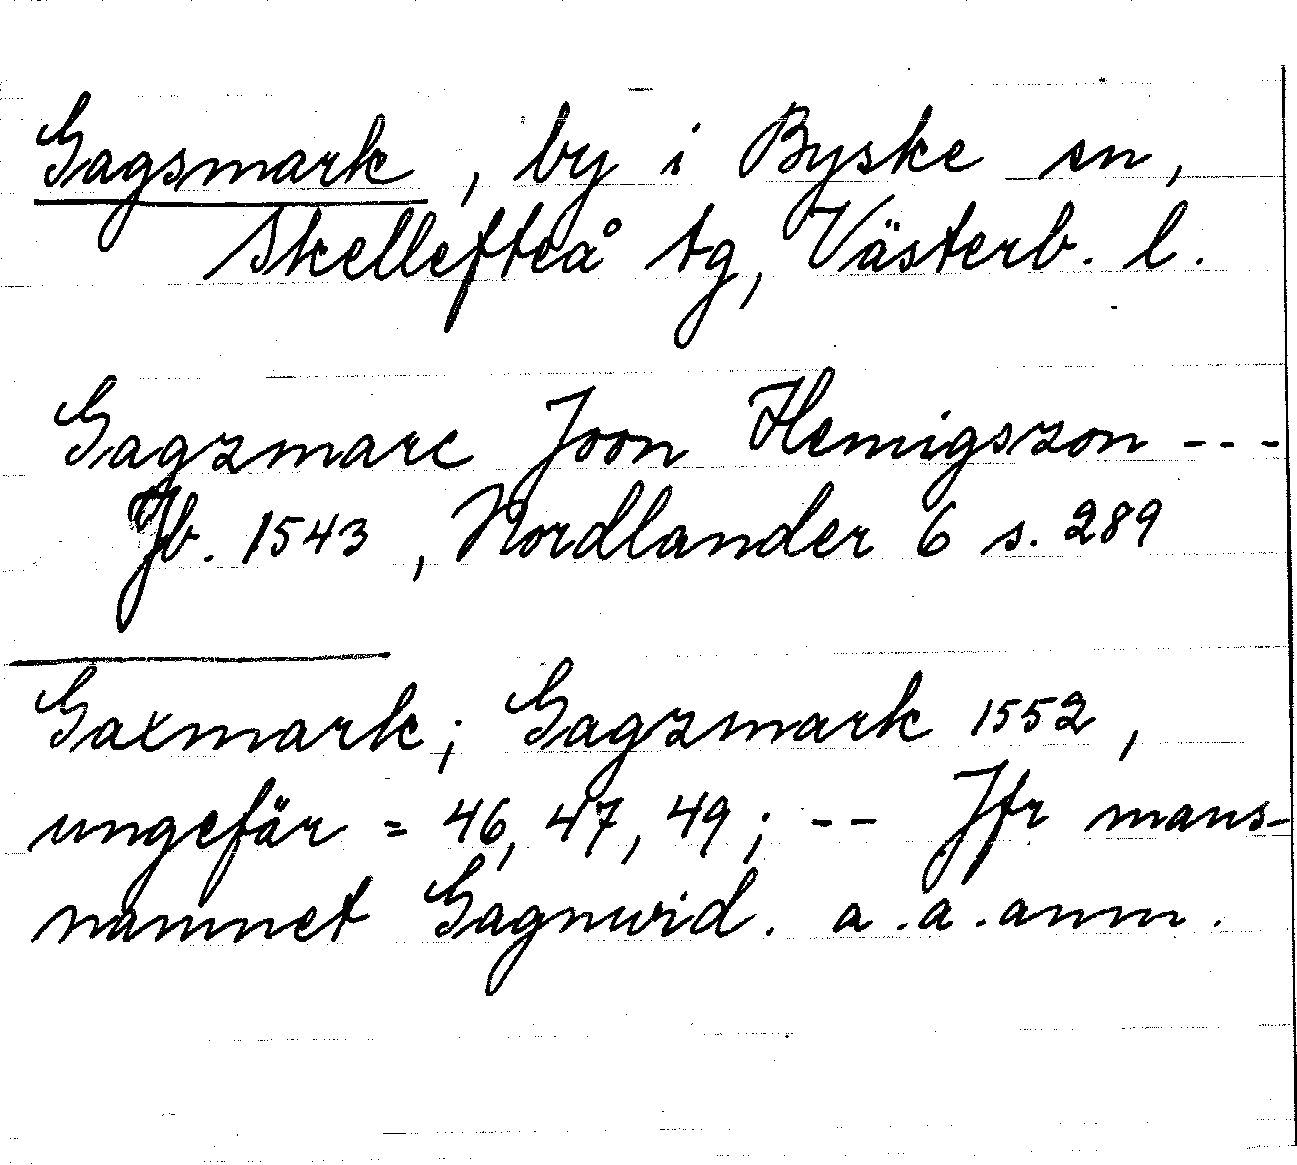 Gagsmark, by i Byske sn,
Skellefteå tg, Västerb. l.
Gagzmarc Joon Hemigszon ---
Jb. 1543, Nordlander 6 s. 289
Gaxmark; Gagzmark 1552,
ungefär = 46, 47, 49; -- Jfr mans-
namnet Gagnwid. a.a. anm.